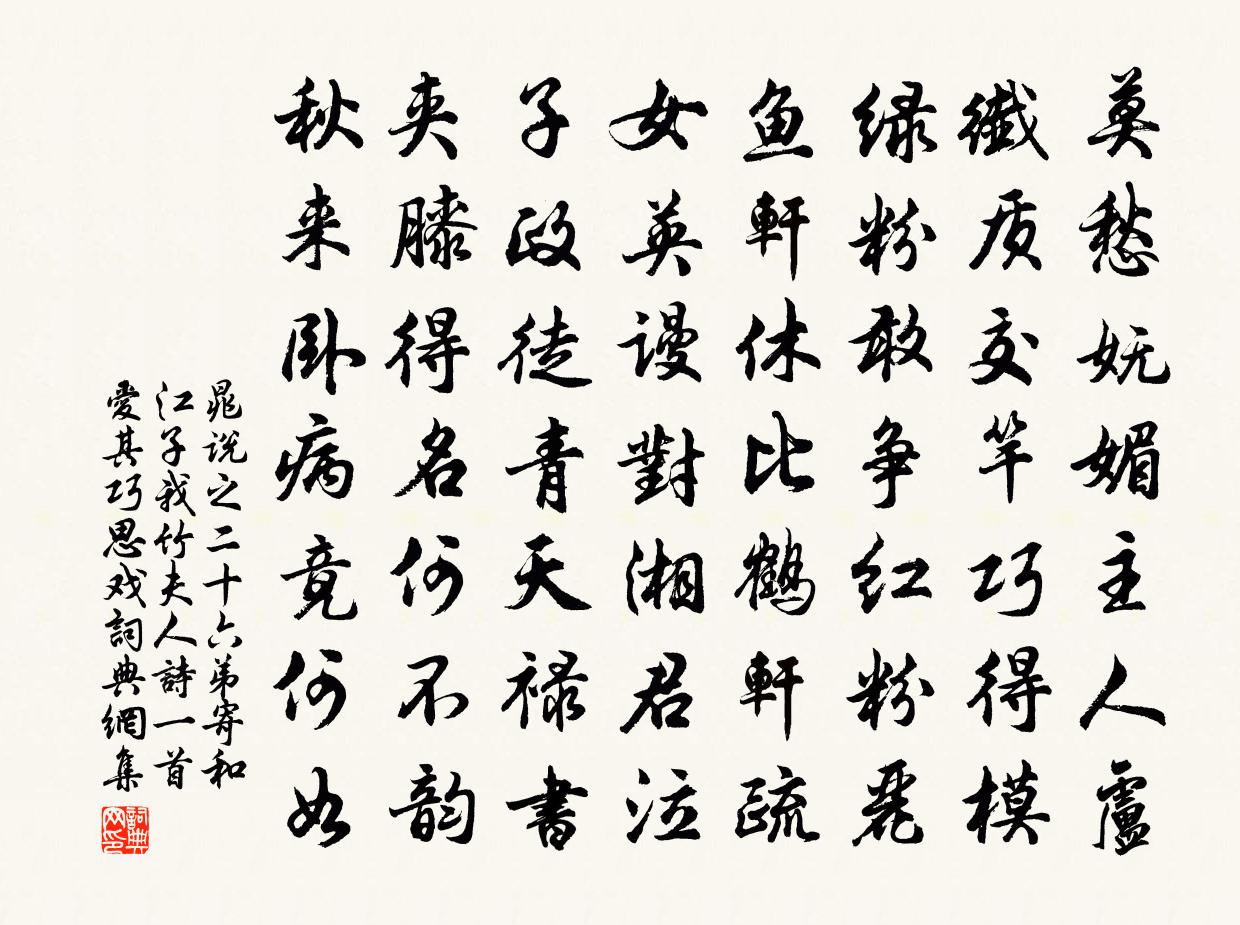 莫愁妩媚主人廬
纖质交竿巧得模
緑粉敢争红粉麗
鱼軒休比鹤軒疏
女英谩對湘君泣
子政徒青天禄書
夹膝得名何不韵
秋来卧病竟何如
晁说之二十六弟寄和
江子我竹夫人詩一首
愛其巧思戏詞典網集
詞典网印